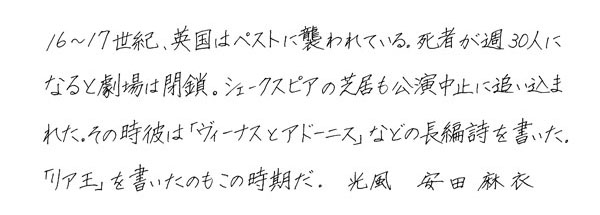 16〜17世紀、英国はペストに襲われている。死者が週30人に
なると劇場は閉鎖。シェークスピアの芝居も公演中止に追い込ま
れた。その時彼は「ヴィーナスとアドーニス」などの長編詩を書いた。
「リア王」を書いたのもこの時期だ。 光風 安田麻衣